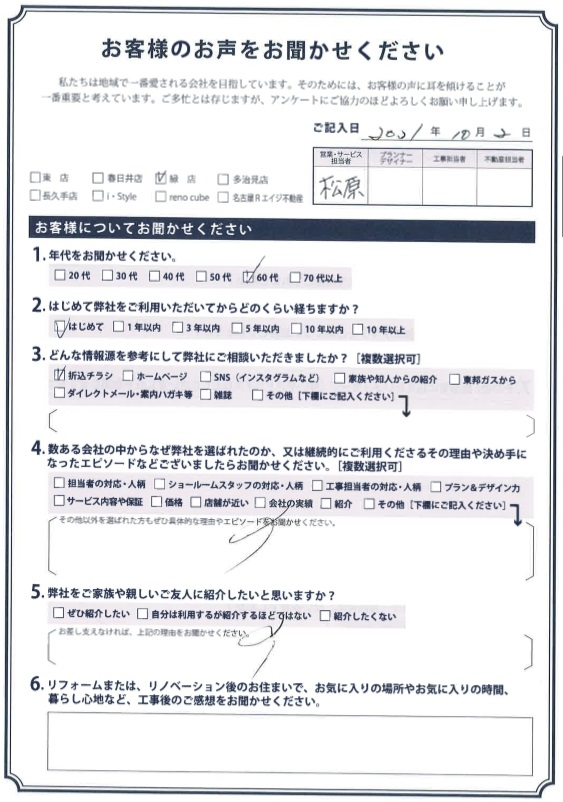 お客様のお声をお聞かせください
私たちは地域で一番愛される会社を目指しています。そのためには、お客様の声に耳を傾けることが
一番重要と考えています。ご多忙とは存じますが、アンケートにご協力のほどよろしくお願い申し上げます。
ご記入日 2021 年 10 月 2 日
営業・サービス担当者 プランナーデザイナー 工事担当者 不動産担当者
松原
東 店 春日井店 緑 店 多治見店
長久手店 i・Style reno cube 名古屋Rエイジ不動産
お客様についてお聞かせください
1. 年代をお聞かせください。
20代 30代 40代 50代 60代 70代以上
2. はじめて弊社をご利用いただいてからどのくらい経ちますか？
はじめて 1年以内 3年以内 5年以内 10年以内 10年以上
3. どんな情報源を参考にして弊社にご相談いただきましたか？［複数選択可］
折込チラシ ホームページ SNS（インスタグラムなど） 家族や知人からの紹介 東邦ガスから
ダイレクトメール・案内ハガキ等 雑誌 その他［下欄にご記入ください］
4. 数ある会社の中からなぜ弊社を選ばれたのか、又は継続的にご利用くださるその理由や決め手に
なったエピソードなどございましたらお聞かせください。［複数選択可］
担当者の対応・人柄 ショールームスタッフの対応・人柄 工事担当者の対応・人柄 プラン＆デザイン力
サービス内容や保証 価格 店舗が近い 会社の実績 紹介 その他［下欄にご記入ください］
その他以外を選ばれた方もぜひ具体的な理由やエピソードをお聞かせください。
5. 弊社をご家族や親しいご友人に紹介したいと思いますか？
ぜひ紹介したい 自分は利用するが紹介するほどではない 紹介したくない
お差し支えなければ、上記の理由をお聞かせください。
6. リフォームまたは、リノベーション後のお住まいで、お気に入りの場所やお気に入りの時間、
暮らし心地など、工事後のご感想をお聞かせください。